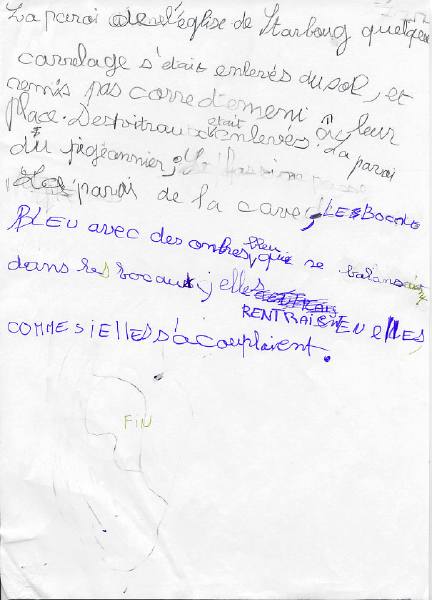 La paroi de l'église de Starboug quelque
carrelage s'était enlevés du sol, et
remis pas corredtement à leur
place. Des vitraux était enlevés. La paroi
du pigéonnier;
La paroi de la cave; LES BOCAUX
BLEU avec des ombres bleu qui se balansait
dans les bocaux; elles
RENTRAIENT EN elles,
COMME SI ELLES S'accouplaient.
FIN